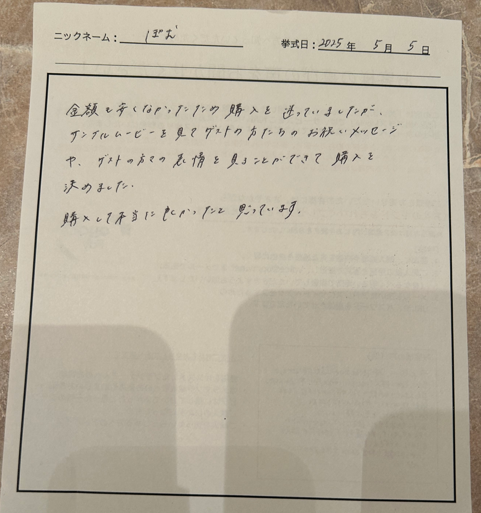 ニックネーム：ぽむ 挙式日：2025年 5月 5日
金額も安くなかったため購入を迷っていましたが、
サンプルムービーを見てゲストの方たちのお祝いメッセージ
や、ゲストの方々の表情を見ることができて購入を
決めました。
購入して本当に良かったと思っています。